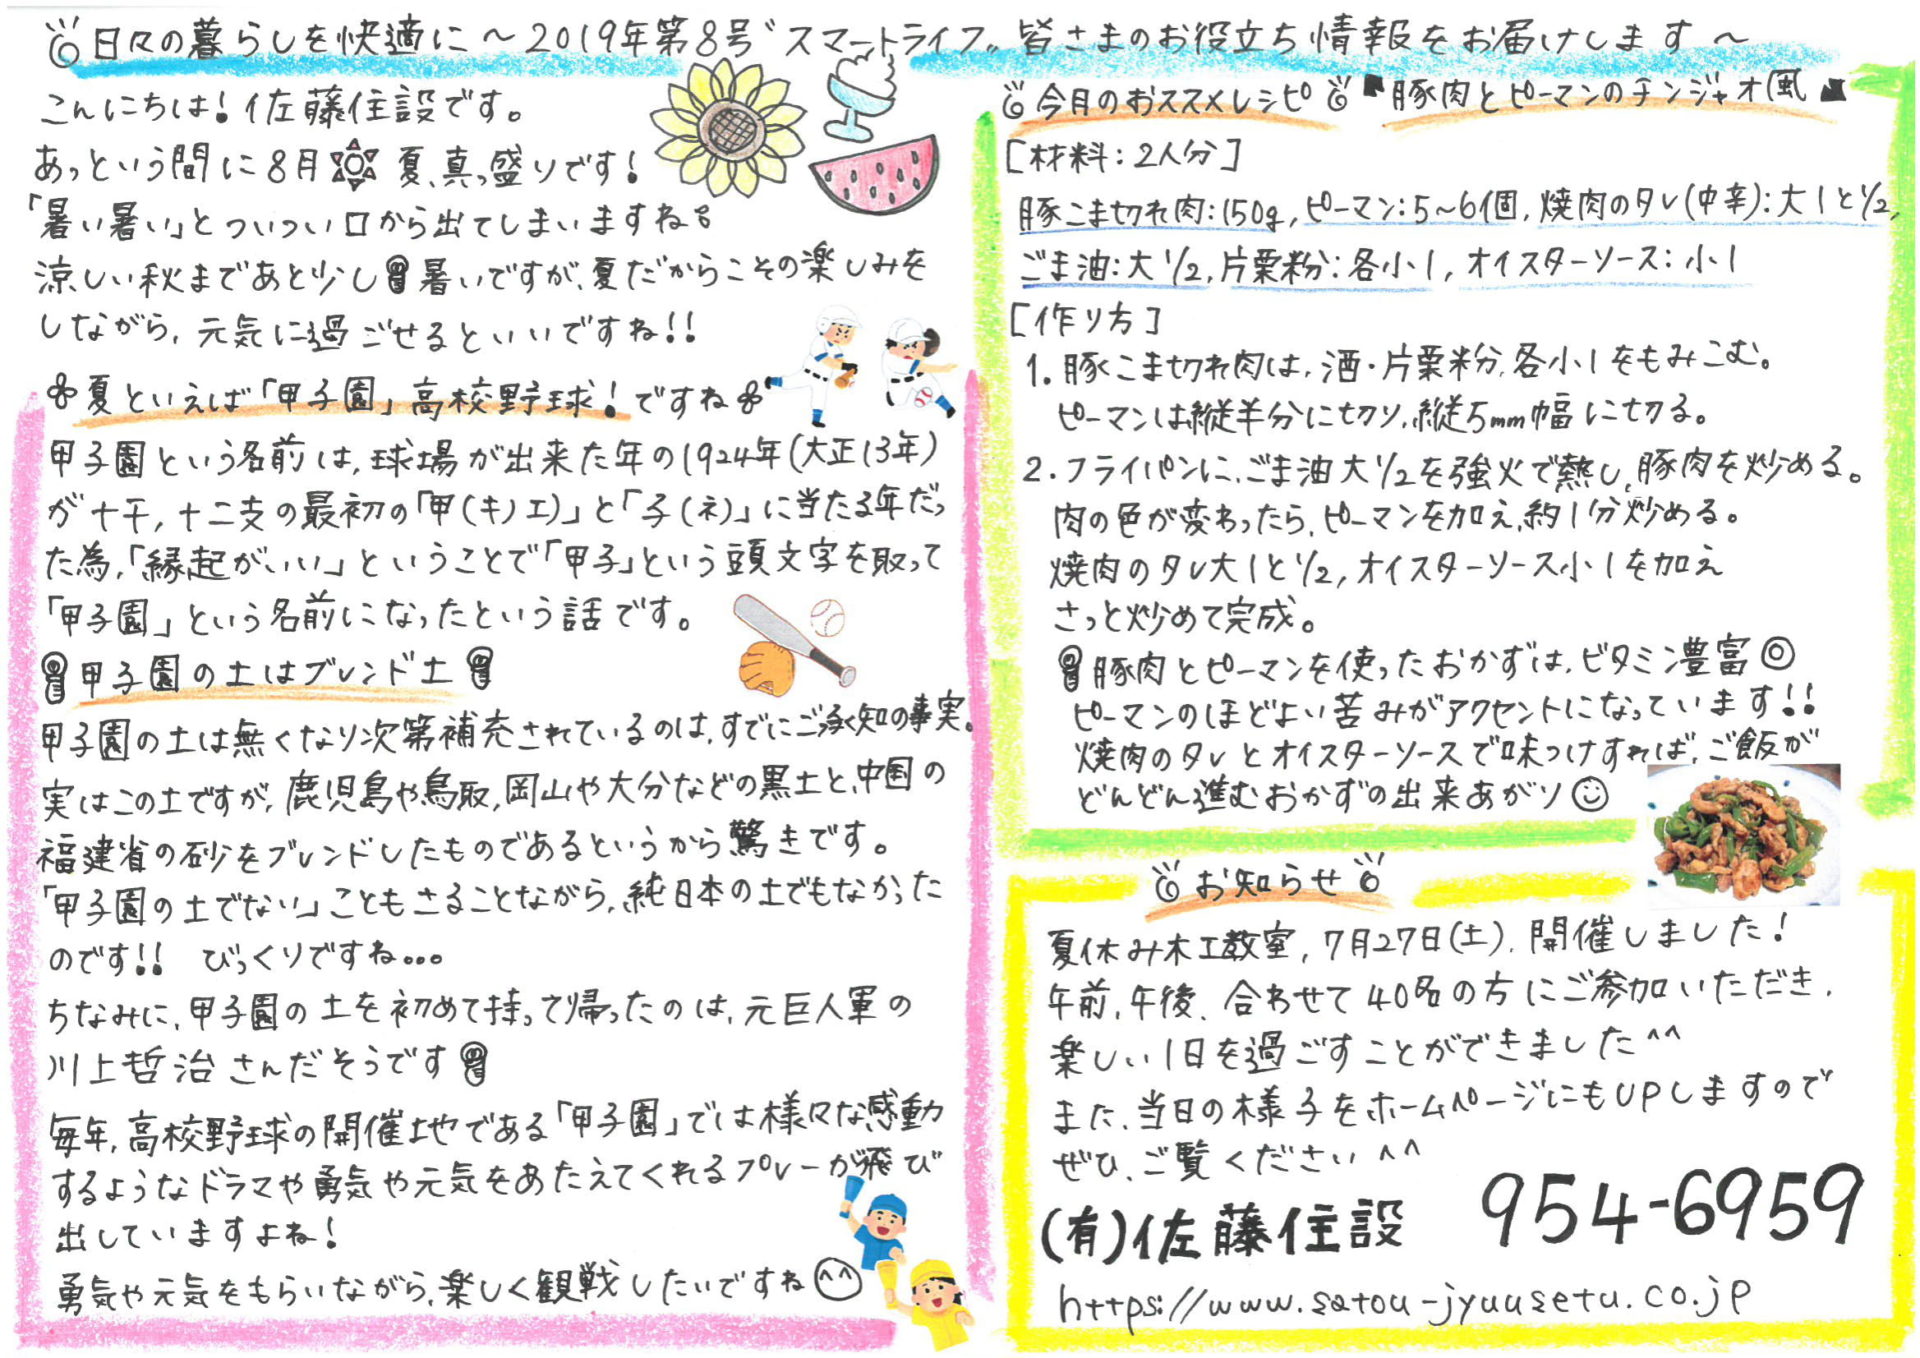 日々の暮らしを快適に～2019年第8号〝スマートライフ〟皆さまのお役立ち情報をお届けします～
こんにちは！佐藤住設です。
あっという間に8月 夏、真っ盛りです！
「暑い暑い」とついつい口から出てしまいますね。
涼しい秋まであと少し 暑いですが、夏だからこその楽しみを
しながら、元気に過ごせるといいですね!!
夏といえば「甲子園」高校野球！ですね
甲子園という名前は、球場が出来た年の1924年(大正13年)
が十干、十二支の最初の「甲(キノエ)」と「子(ネ)」に当たる年だっ
た為、「縁起がいい」ということで「甲子」という頭文字を取って
「甲子園」という名前になったという話です。
甲子園の土はブレンド土
甲子園の土は無くなり次第補充されているのは、すでにご承知の事実。
実はこの土ですが、鹿児島や鳥取、岡山や大分などの黒土と、中国の
福建省の砂をブレンドしたものであるというから驚きです。
「甲子園の土でない」こともさることながら、純日本の土でもなかった
のです!! びっくりですね…
ちなみに、甲子園の土を初めて持って帰ったのは、元巨人軍の
川上哲治さんだそうです
毎年、高校野球の開催地である「甲子園」では様々な感動
するようなドラマや勇気や元気をあたえてくれるプレーが飛び
出していますよね！
勇気や元気をもらいながら、楽しく観戦したいですね^^
今月のおススメレシピ 豚肉とピーマンのチンジャオ風
[材料：2人分]
豚こま切れ肉：150g、ピーマン：5～6個、焼肉のタレ(中辛)：大1と1/2、
ごま油：大1/2、片栗粉：各小1、オイスターソース：小1
[作り方]
1. 豚こま切れ肉は、酒・片栗粉、各小1をもみこむ。
ピーマンは縦半分に切り、縦5mm幅に切る。
2. フライパンに、ごま油大1/2を強火で熱し、豚肉を炒める。
肉の色が変わったら、ピーマンを加え、約1分炒める。
焼肉のタレ大1と1/2、オイスターソース小1を加え
さっと炒めて完成。
豚肉とピーマンを使ったおかずは、ビタミン豊富◎
ピーマンのほどよい苦みがアクセントになっています!!
焼肉のタレとオイスターソースで味つけすれば、ご飯が
どんどん進むおかずの出来あがり
お知らせ
夏休み木工教室、7月27日(土)、開催しました！
午前、午後、合わせて40名の方にご参加いただき、
楽しい1日を過ごすことができました^^
また、当日の様子をホームページにもUPしますので
ぜひ、ご覧ください^^
(有)佐藤住設 954-6959
https://www.satou-jyuusetu.co.jp